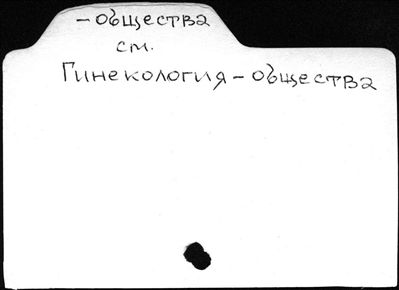 - общества
см.
Гинекология - общества